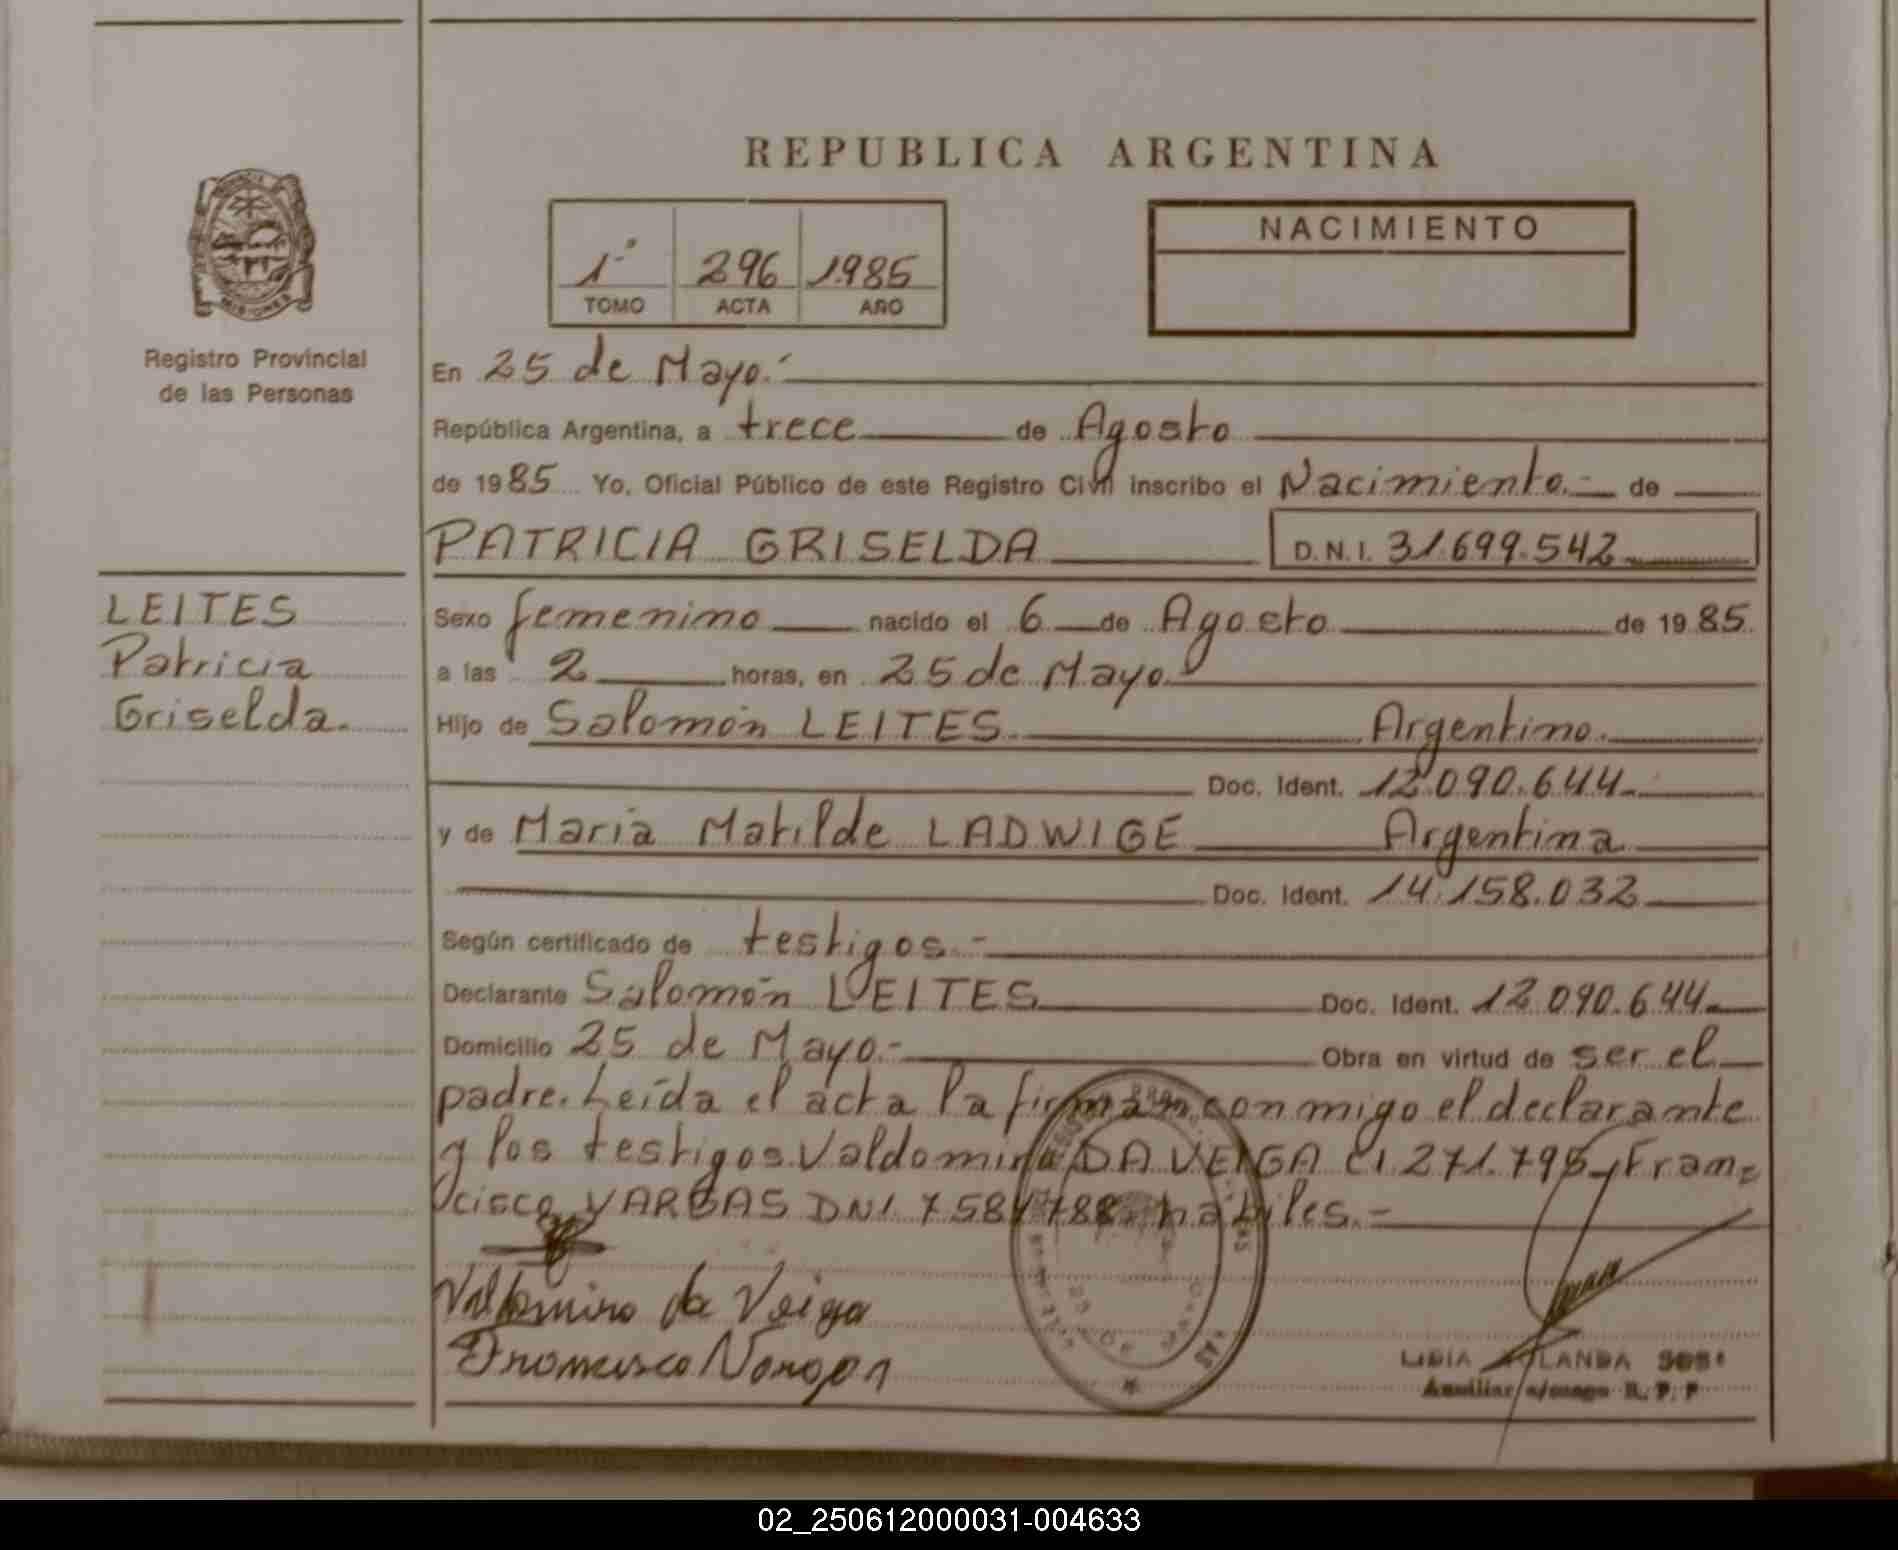 REPUBLICA ARGENTINA
1º 296 1985
TOMO ACTA AÑO
NACIMIENTO
MISIONES
Registro Provincial
de las Personas
En 25 de Mayo.-
República Argentina, a trece de Agosto
de 1985 Yo, Oficial Público de este Registro Civil inscribo el Nacimiento.- de
PATRICIA GRISELDA D.N.I. 31.699.542
LEITES
Patricia
Griselda.
Sexo femenino nacido el 6 de Agosto de 1985
a las 2 horas, en 25 de Mayo
Hijo de Salomón LEITES Argentino.
Doc. Ident. 12.090.644.-
y de Maria Matilde LADWIGE Argentina
Doc. Ident. 14.158.032
Según certificado de testigos.-
Declarante Salomón LEITES Doc. Ident. 12.090.644.-
Domicilio 25 de Mayo.- Obra en virtud de ser el
padre. Leída el acta la firman conmigo el declarante
y los testigos Valdomiro DA VEIGA CI 271.795 y Fran=
cisco VARGAS DNI 7584788. habiles.-
Valdomiro da Veiga
Francisco
LIDIA YOLANDA SOSA
Auxiliar a/cargo R. P. P
02_250612000031-004633